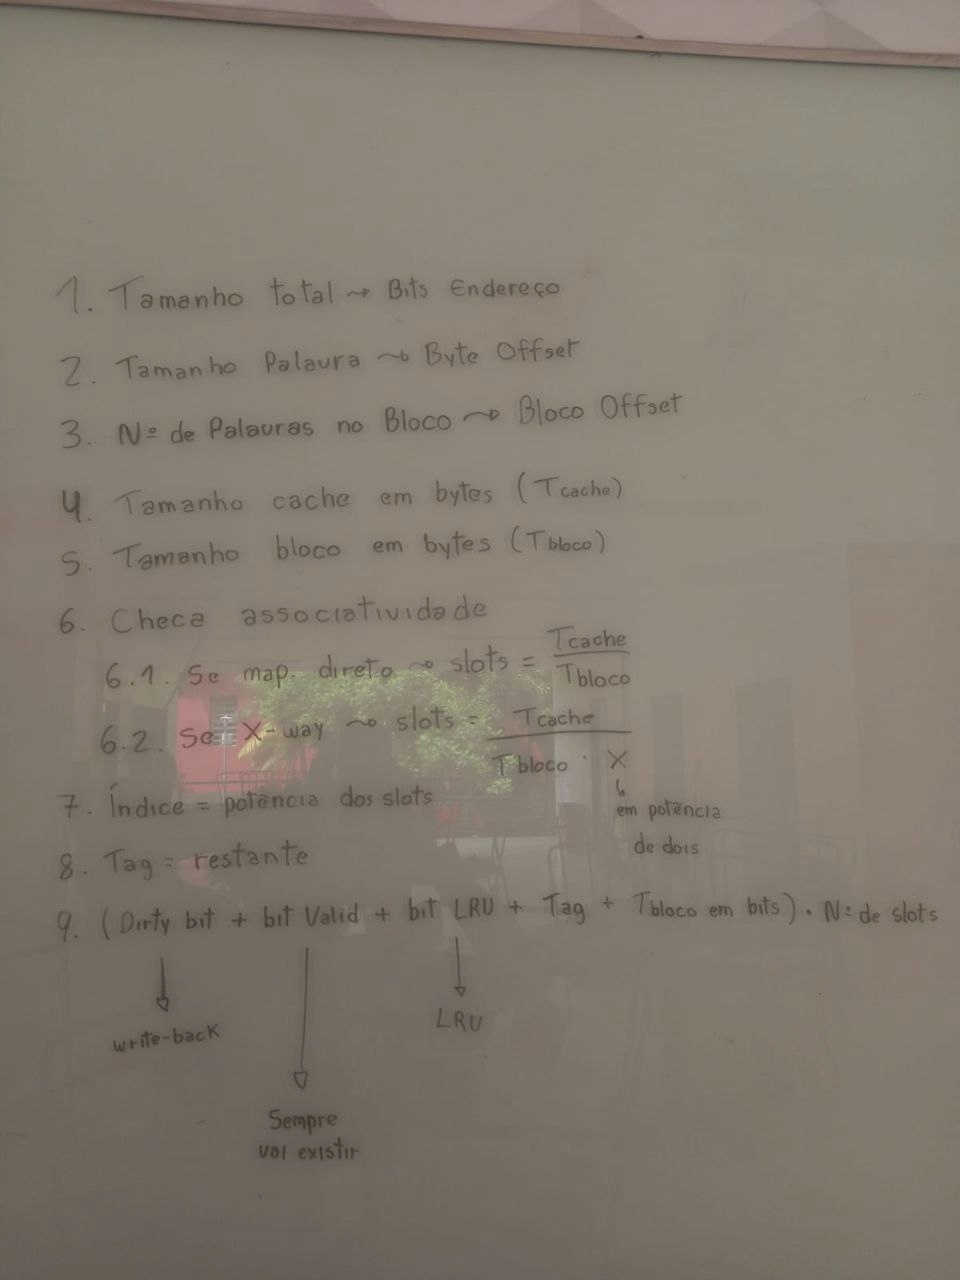 1. Tamanho total → Bits Endereço
2. Tamanho Palavra → Byte Offset
3. Nº de Palavras no Bloco → Bloco Offset
4. Tamanho cache em bytes (Tcache)
5. Tamanho bloco em bytes (Tbloco)
6. Checa associatividade
6.1. Se map. direto → slots = Tcache / Tbloco
6.2. Se X-way → slots = Tcache / Tbloco · X
em potência
de dois
7. Índice = potência dos slots
8. Tag = restante
9. (Dirty bit + bit Valid + bit LRU + Tag + Tbloco em bits) · Nº de slots
write-back
LRU
Sempre
vai existir